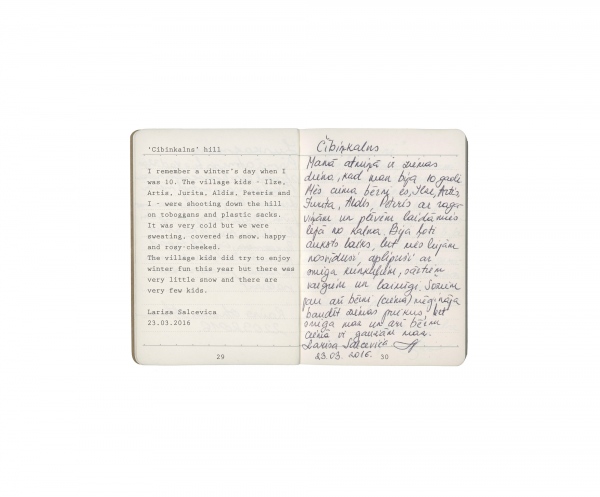 'Cibiņkalns' hill
I remember a winter's day when I
was 10. The village kids - Ilze,
Artis, Jurita, Aldis, Peteris and
I - were shooting down the hill
on toboggans and plastic sacks.
It was very cold but we were
sweating, covered in snow, happy
and rosy-cheeked.
The village kids did try to enjoy
winter fun this year but there was
very little snow and there are
very few kids.
Larisa Salcevica
23.03.2016
29
Čibiņkalns
Manā atmiņā ir ziemas
diena, kad man bija 10 gadi.
Mēs ciema bērni es, Ilze, Artis,
Jurita, Aldis, Pēteris ar ragav
viņām un plēvēm laidāmies
lejā no kalna. Bija ļoti
auksts laiks, bet mēs bijām
nosvīduši, aplipuši ar
sniega kunkuļiem, sārtiem
vaigiem un laimīgi. Šoziem
jau arī bērni (ciema) mēģināja
baudīt ziemas priekus, bet
sniega maz un arī bērnu
ciemā ir gaužām maz.
Larisa Salceviča
23.03. 2016.
30